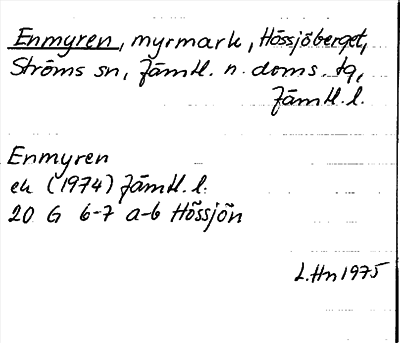 Enmyren, myrmark, Hössjöberget,
Ströms sn, Jämtl. n. doms. tq,
Jämtl. l.
Enmyren
ek (1974) Jämtl. l.
20 G 6-7 a-b Hössjön
L. Hn 1975